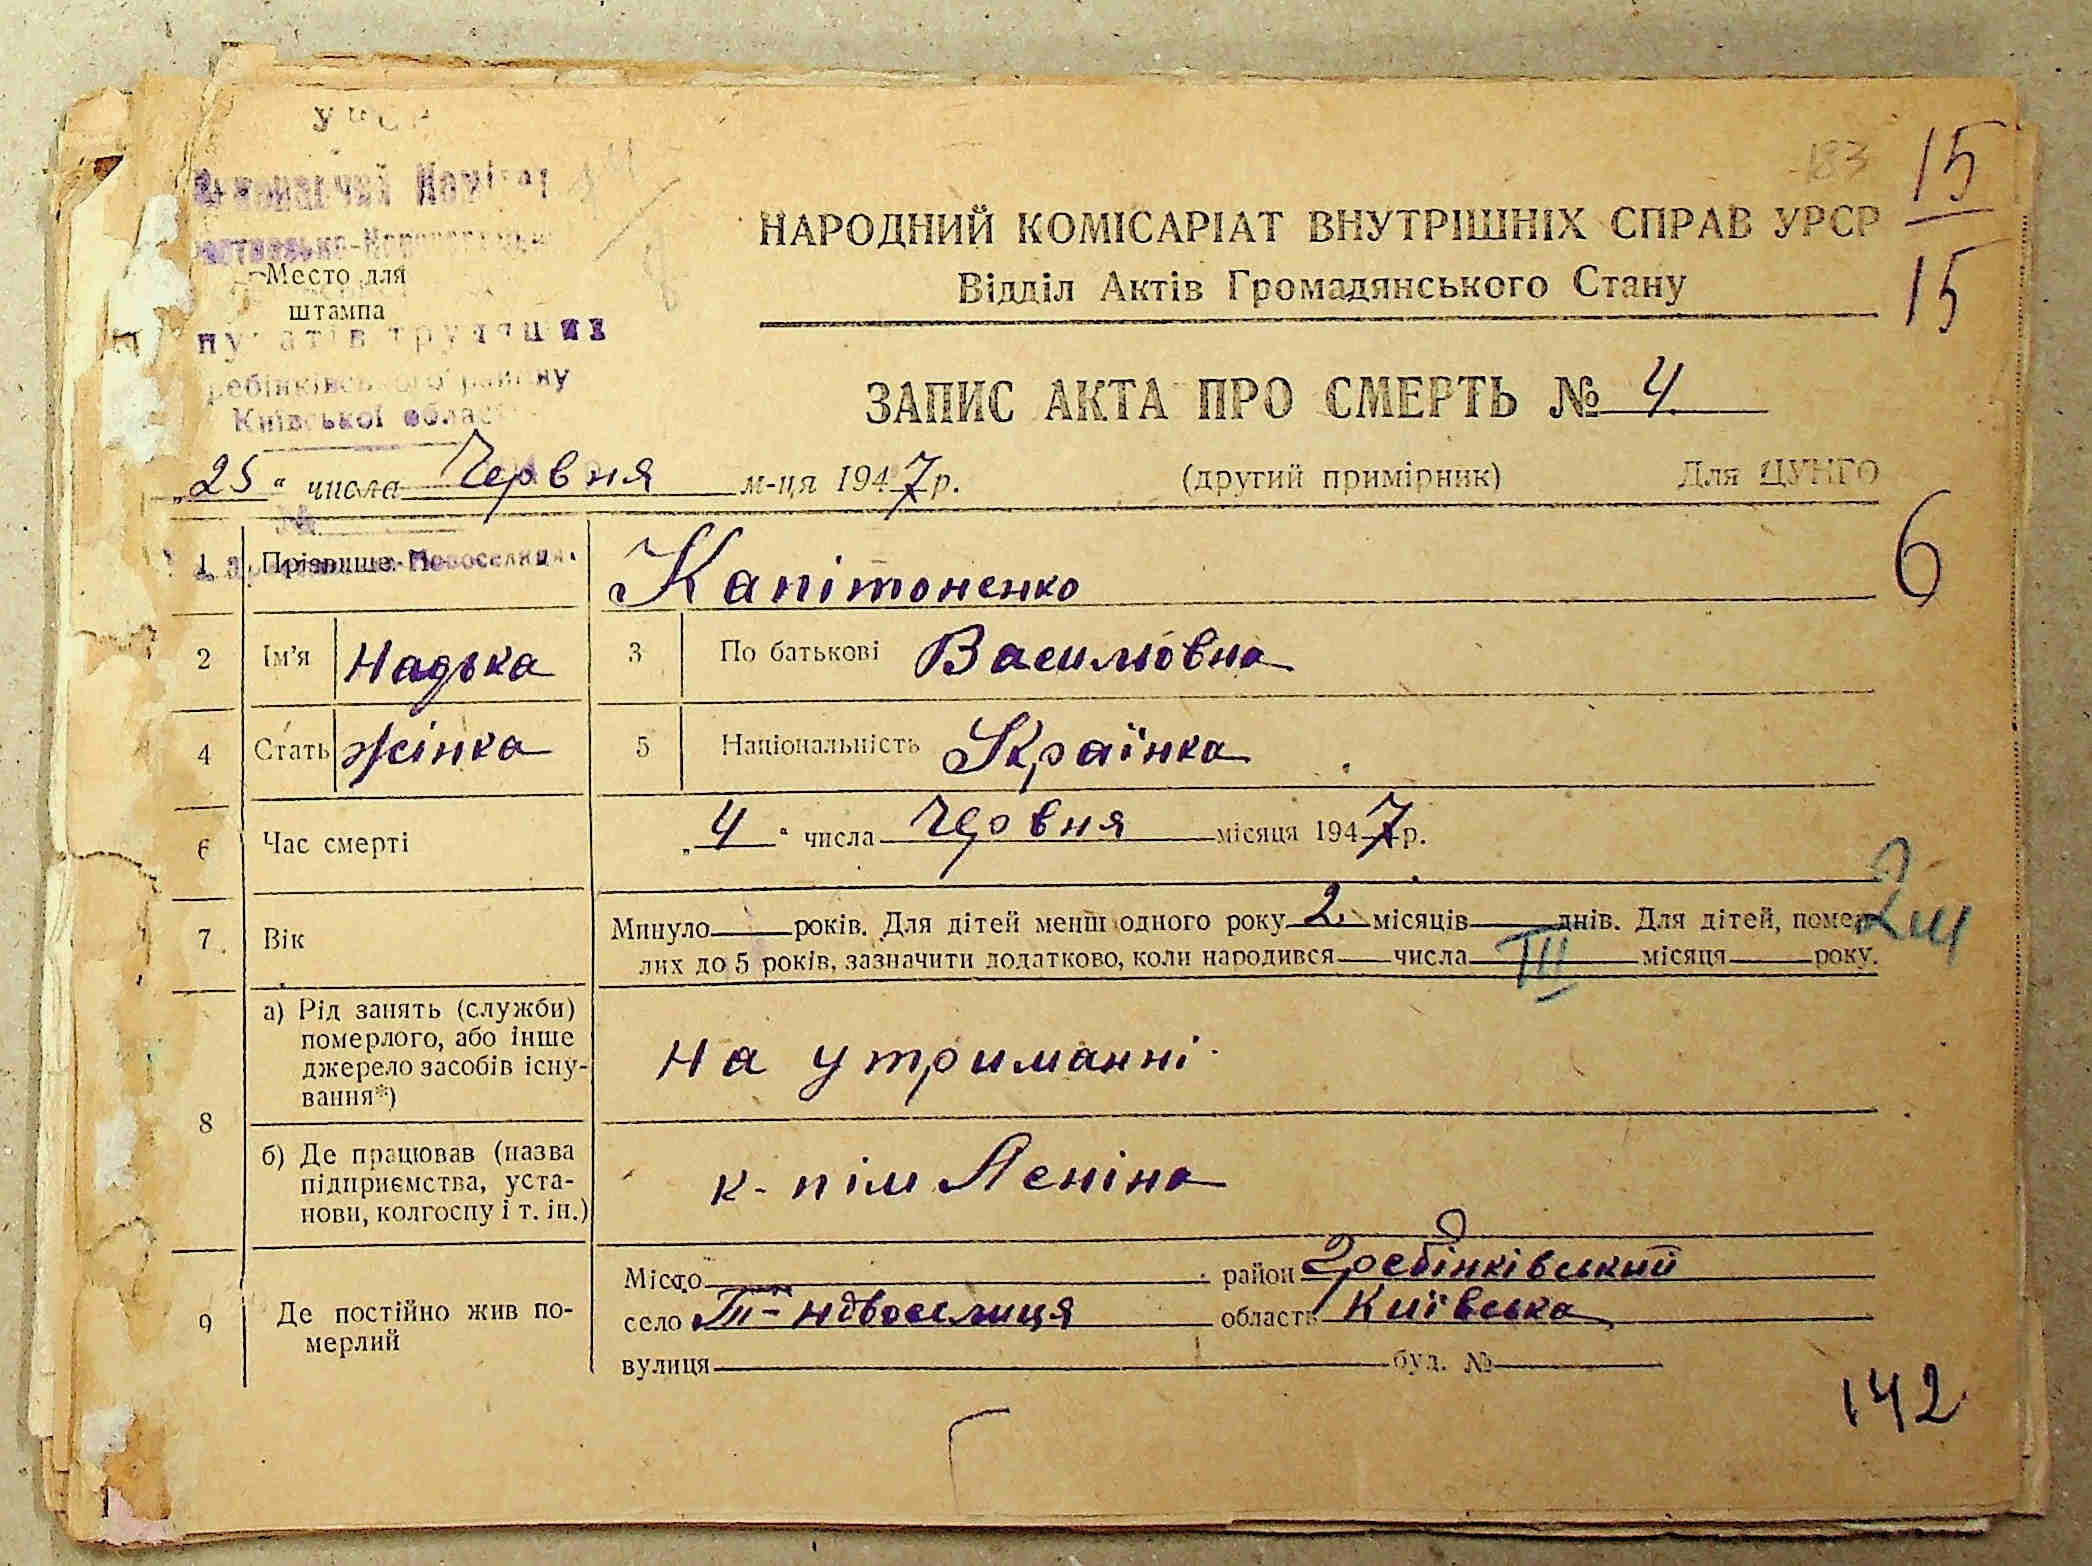 183
15
15
УРСР
Комітет
Место для
штампа
трудящих
Київської області
НАРОДНИЙ КОМІСАРІАТ ВНУТРІШНІХ СПРАВ УРСР
Відділ Актів Громадянського Стану
ЗАПИС АКТА ПРО СМЕРТЬ № 4
„25“ числа Червня м-ця 1947р. (другий примірник) Для ЦУНГО
6
1 Прізвище Капітоненко
2 Ім'я Надька 3 По батькові Василювна
4 Стать жінка 5 Національність Українка
6 Час смерті „4“ числа Червня місяця 1947р.
7 Вік Минуло років. Для дітей менш одного року 2 місяців днів. Для дітей, помер-
лих до 5 років, зазначити додатково, коли народився числа III місяця року.
8 а) Рід занять (служби)
померлого, або інше
джерело засобів існу-
вання*)
на утриманні
б) Де працював (назва
підприємства, уста-
нови, колгоспу і т. ін.)
к-п ім Леніна
9 Де постійно жив по-
мерлий
Місто район Гребінківський
село Новоселиця область Київська
вулиця буд. №
142